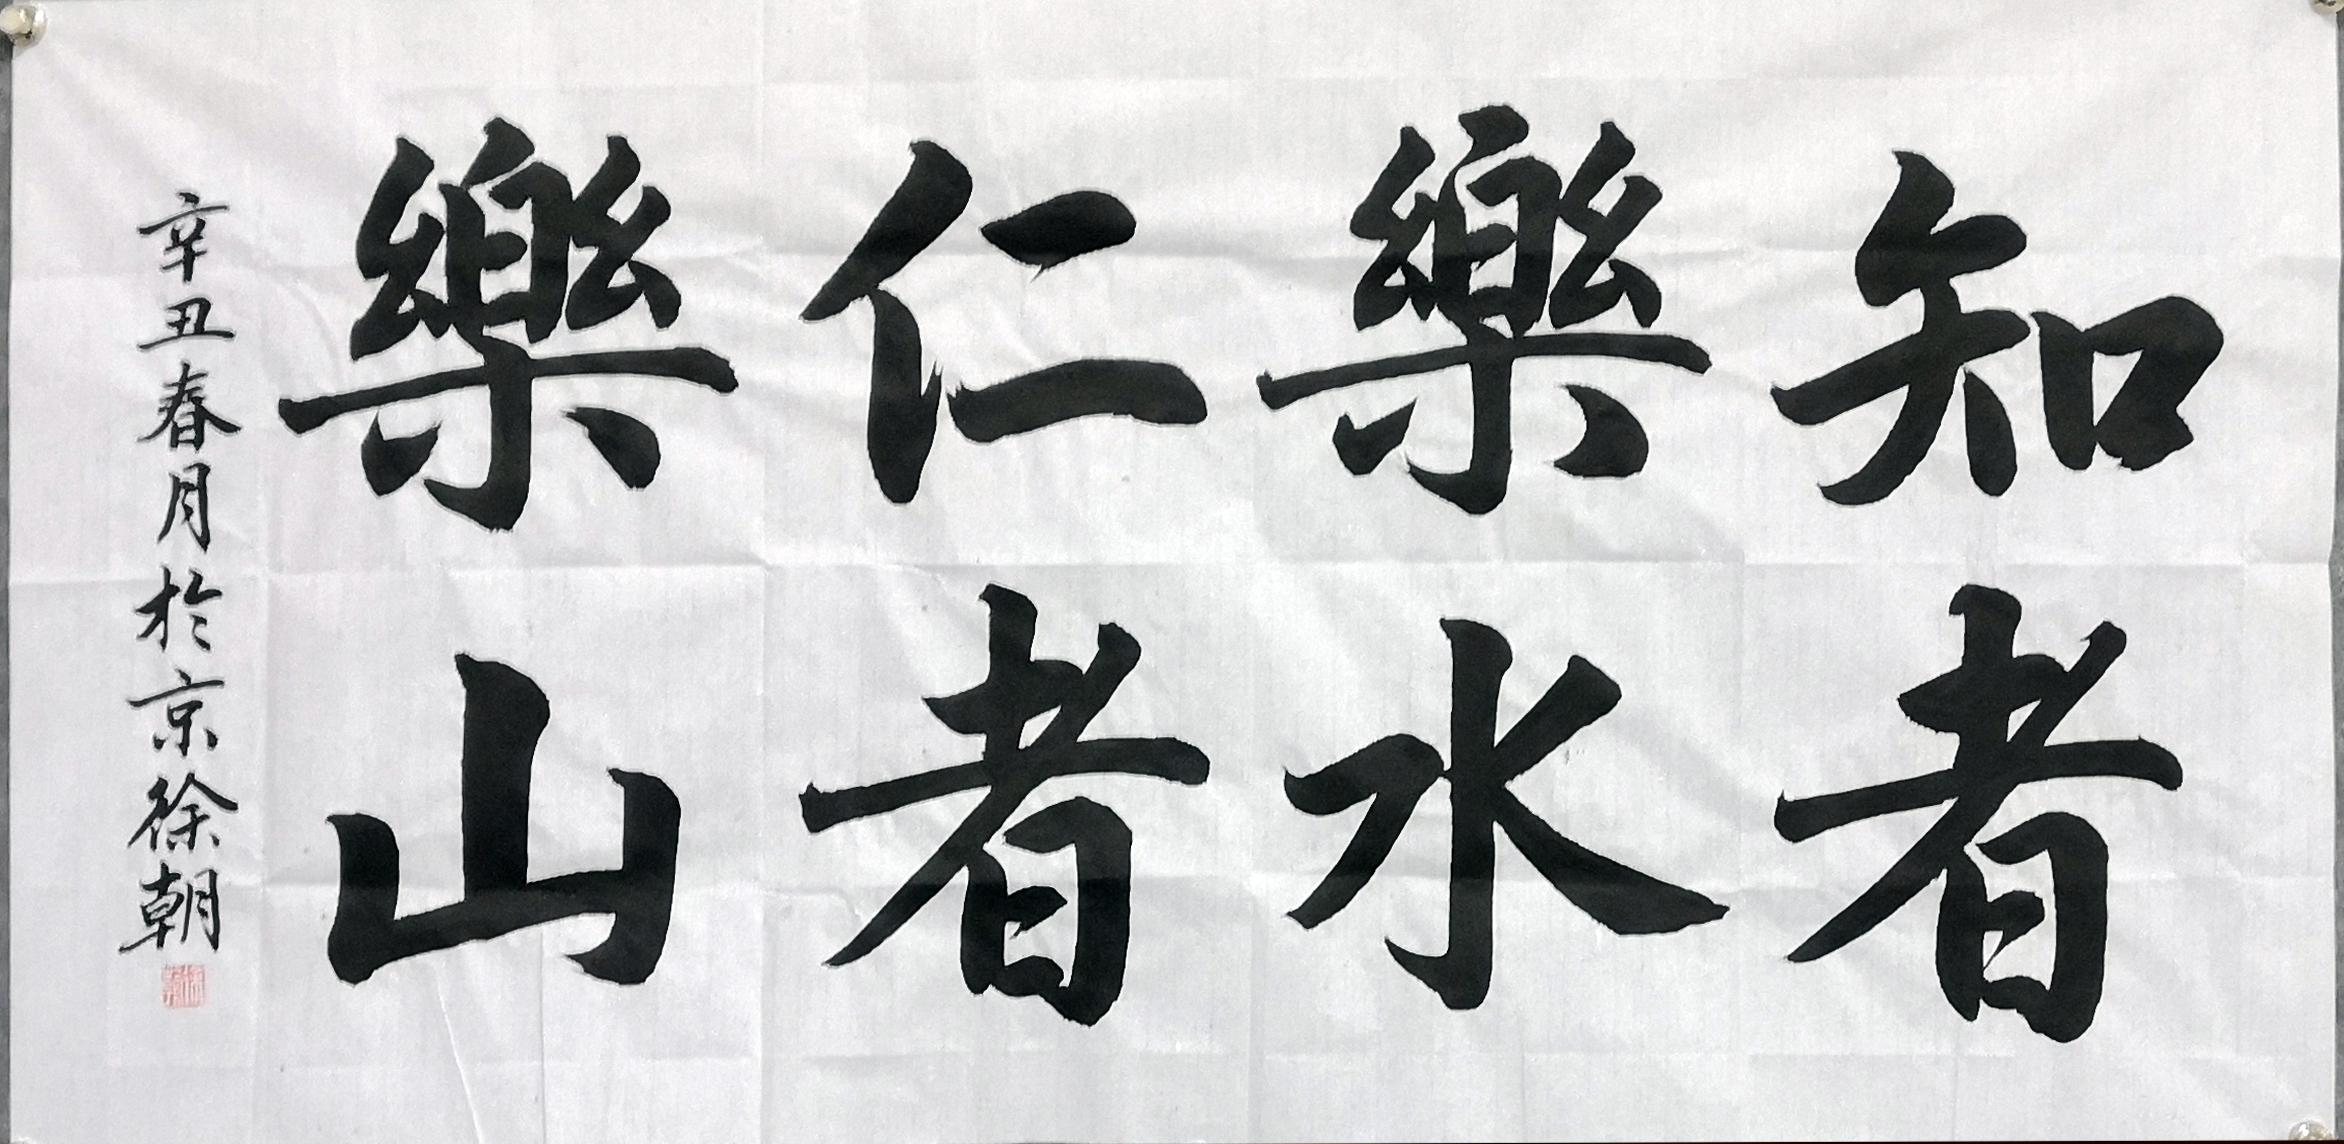 知者
樂水
仁者
樂山
辛丑春月於京徐朝